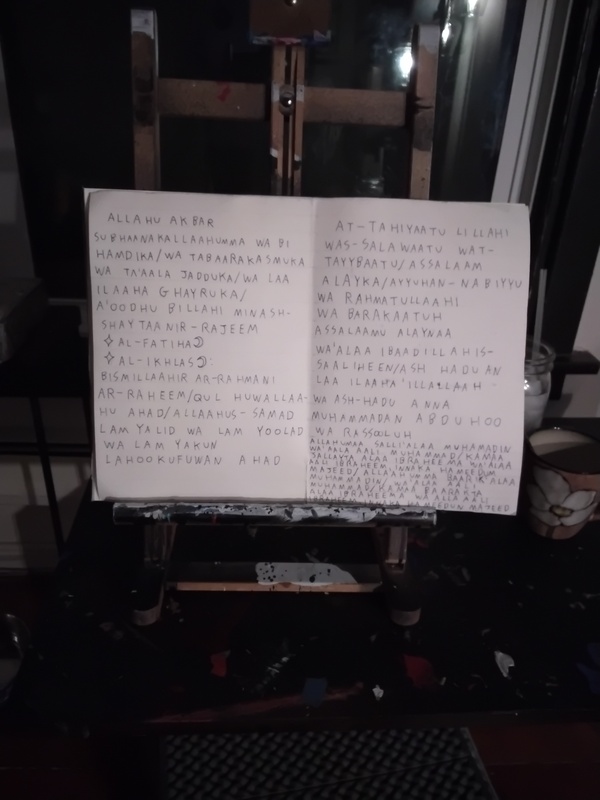 ALLAHU AKBAR
SUBHAANAKALLAAHUMMA WA BI
HAMDIKA/WA TABAARAKASMUKA
WA TA'AALA JADDUKA/WA LAA
ILAAHA GHAYRUKA/
A'OODHU BILLAHI MINASH-
SHAYTAANIR-RAJEEM
AL-FATIHA
AL-IKHLAS:
BISMILLAAHIR AR-RAHMANI
AR-RAHEEM/QUL HUWALLAA-
HU AHAD/ALLAAHUS-SAMAD
LAM YALID WA LAM YOOLAD
WA LAM YAKUN
LAHOOKUFUWAN AHAD
AT-TAHIYAATU LILLAHI
WAS-SALAWAATU WAT-
TAYYBAATU/ASSALAAM
ALAYKA/AYYUHAN-NABIYYU
WA RAHMATULLAAHI
WA BARAKAATUH
ASSALAAMU ALAYNAA
WA'ALAA IBAADILLAHIS-
SAALIHEEN/ASH HADU AN
LAA ILAAHA 'ILLALLAAH
WA ASH-HADU ANNA
MUHAMMADAN ABDUHOO
WA RASSOOLUH
ALLAHUMMA SALLI'ALAA MUHAMADIN
WA'AALA AALI MUHAMMAD/KAMAA
SALLAYTA ALAA IBRAHEEMA WA'ALAA
AALI IBRAHEEM, INNAKA HAMEEDUM
MAJEED/ALLAAHUMMA BAARIK'ALAA
MUHAMMADIN, WA'ALAA AALI
MUHAMMAD/KAMAA BAARAKTA
ALAA IBRAHEEMA WA ALAA AALI
MAJEED